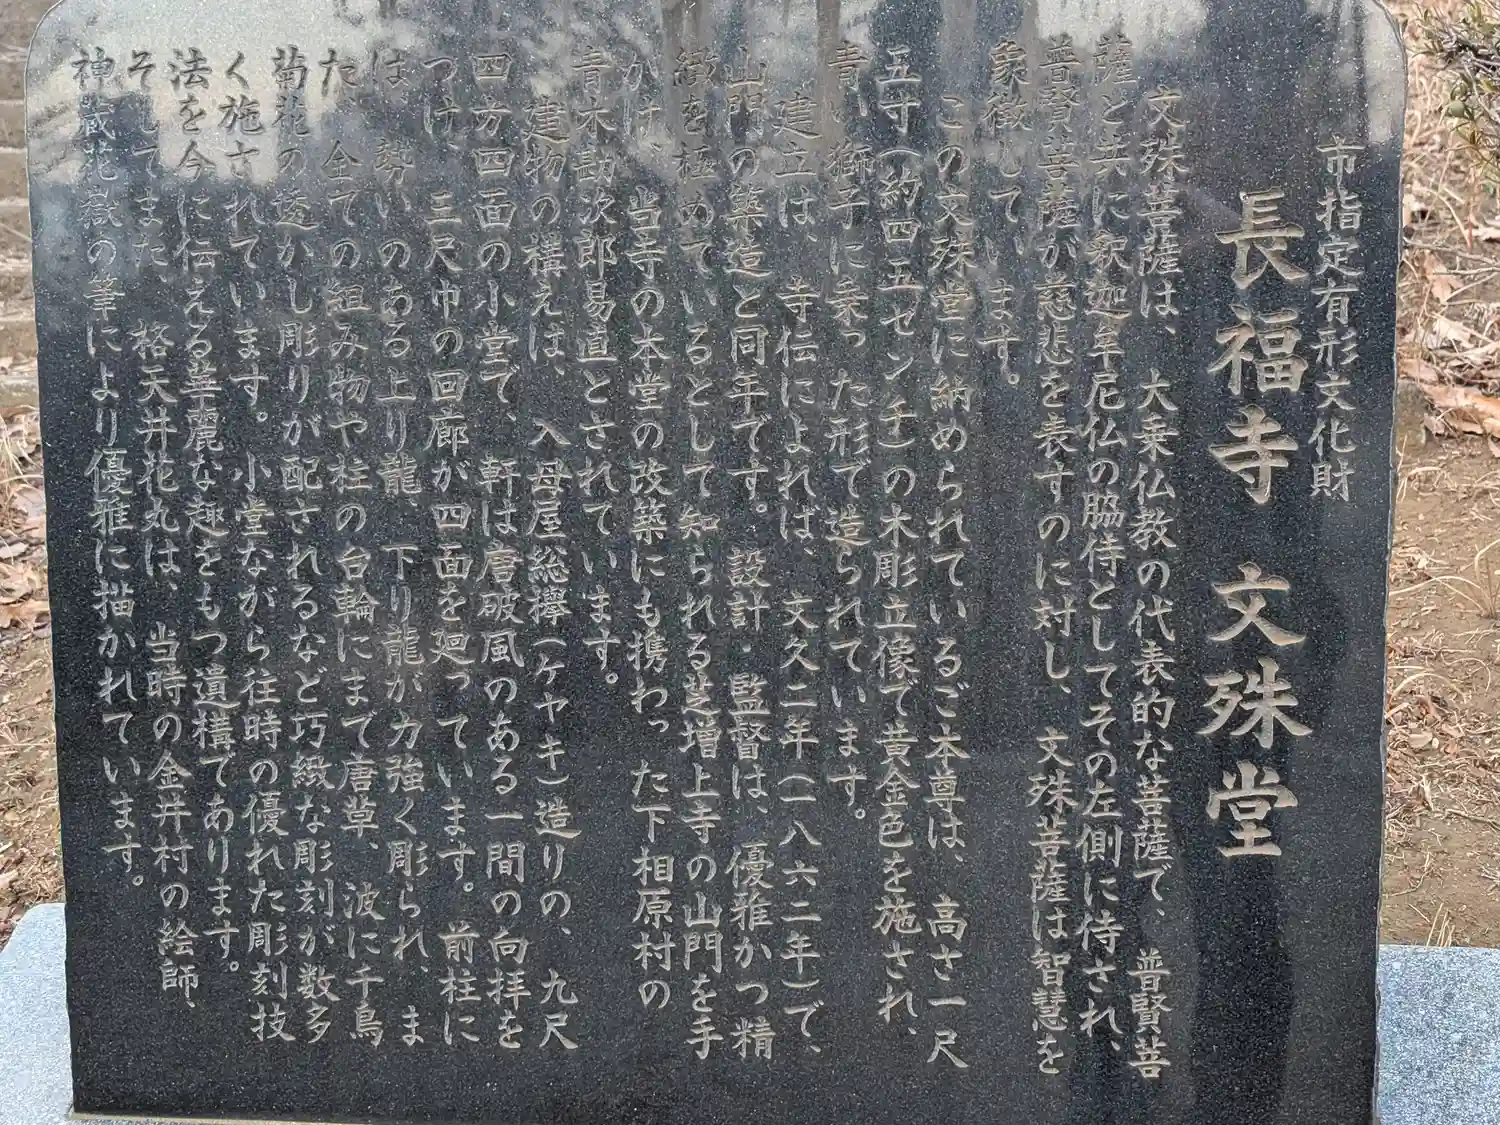 市指定有形文化財
長福寺 文殊堂
文殊菩薩は、大乗仏教の代表的な菩薩で、普賢菩
薩と共に釈迦牟尼仏の脇侍としてその左側に侍され、
普賢菩薩が慈悲を表すのに対し、文殊菩薩は智慧を
象徴しています。
この文殊堂に納められているご本尊は、高さ一尺
五寸(約四五センチ)の木彫立像で黄金色を施され、
青い獅子に乗った形で造られています。
建立は、寺伝によれば、文久二年(一八六二年)で、
山門の築造と同年です。設計・監督は、優雅かつ精
緻を極めているとして知られる芝増上寺の山門を手
がけ、当寺の本堂の改築にも携わった下相原村の
青木勘次郎易直とされています。
建物の構えは、入母屋総欅(ケヤキ)造りの、九尺
四方四面の小堂で、軒は唐破風のある一間の向拝を
つけ、三尺巾の回廊が四面を廻っています。前柱に
は、勢いのある上り龍、下り龍が力強く彫られ、ま
た、全ての組み物や柱の台輪にまで唐草、波に千鳥
菊花の透かし彫りが配されるなど巧緻な彫刻が数多
く施されています。小堂ながら往時の優れた彫刻技
法を今に伝える華麗な趣をもつ遺構であります。
そしてまた、格天井花丸は、当時の金井村の絵師、
神蔵花嶽の筆により優雅に描かれています。